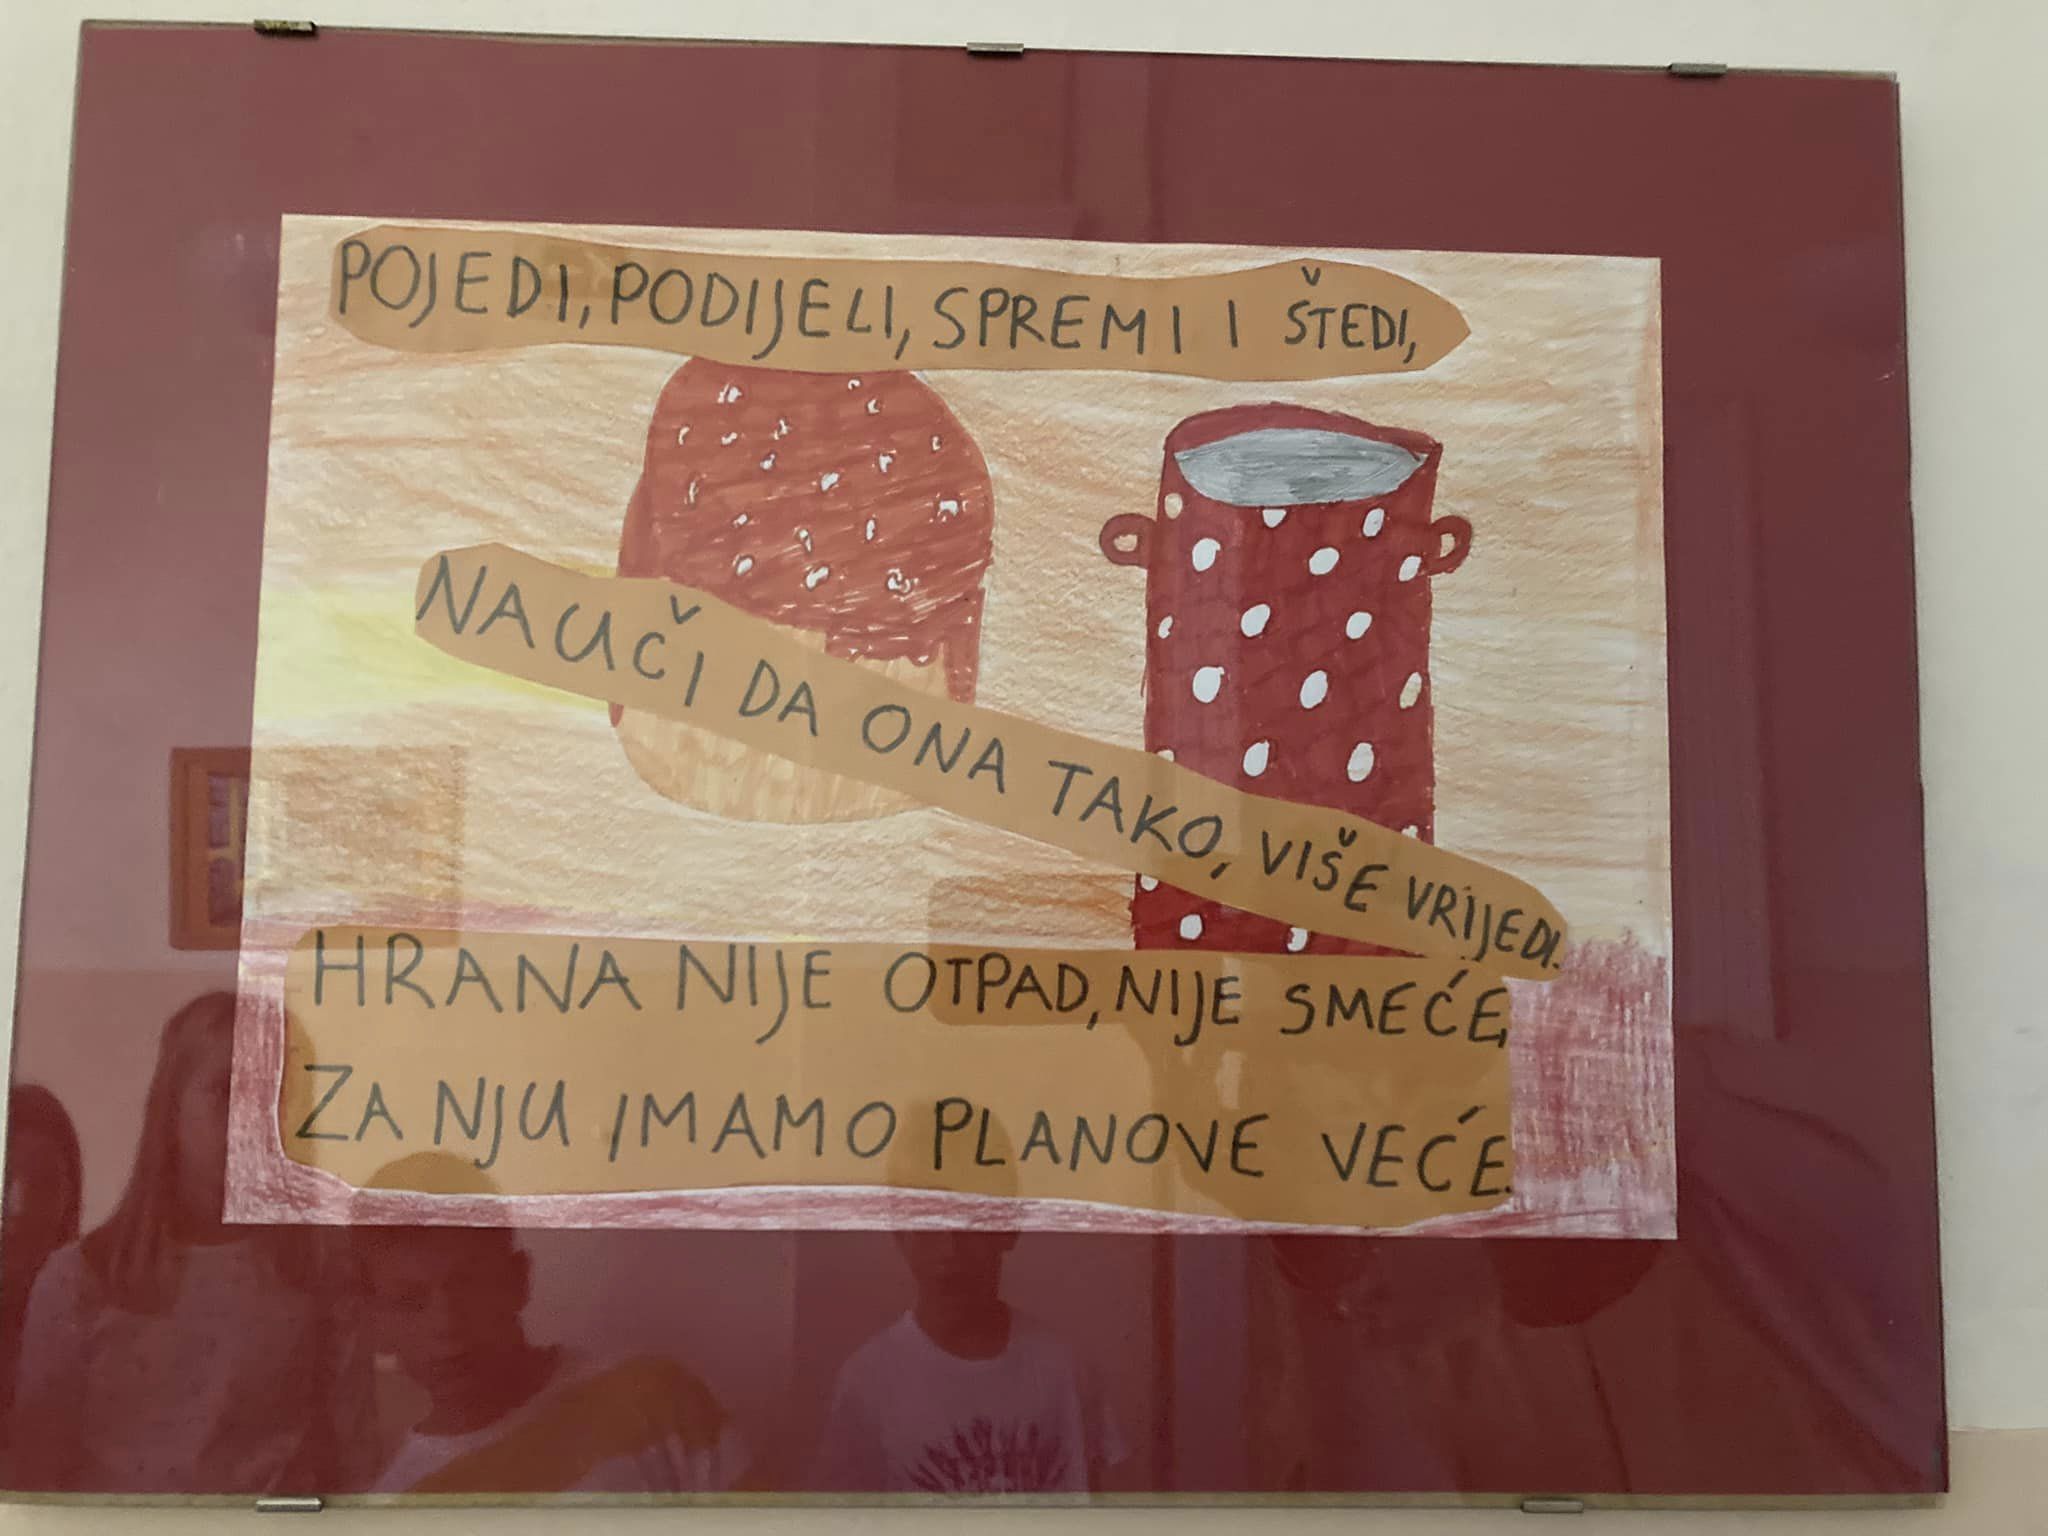 POJEDI, PODIJELI, SPREMI I ŠTEDI,
NAUČI DA ONA TAKO, VIŠE VRIJEDI.
HRANA NIJE OTPAD, NIJE SMEĆE,
ZA NJU IMAMO PLANOVE VEĆE.